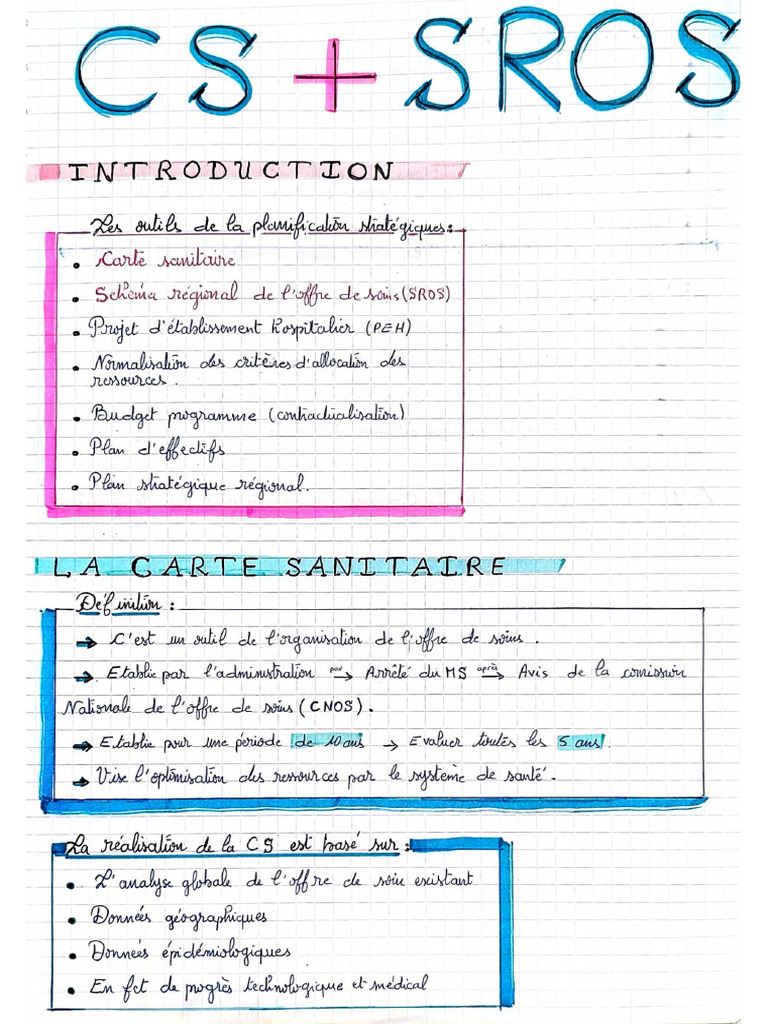 CS + SROS
INTRODUCTION
Les outils de la planification stratégiques :
• Carte sanitaire
• Schéma régional de l'offre de soins (SROS)
• Projet d'établissement hospitalier (PEH)
• Normalisation des critères d'allocation des
ressources.
• Budget programme (contractualisation)
• Plan d'effectifs
• Plan stratégique régional.
LA CARTE SANITAIRE
Définition :
→ C'est un outil de l'organisation de l'offre de soins.
→ Etablie par l'administration par→ Arrêté du MS après→ Avis de la comission
Nationale de l'offre de soins (CNOS).
→ Etablie pour une période de 10 ans → Evaluer toutes les 5 ans.
→ Vise l'optimisation des ressources par le système de santé.
La réalisation de la CS est basé sur :
• L'analyse globale de l'offre de soin existant
• Données géographiques
• Données épidémiologiques
• En fct de progrès technologique et médical